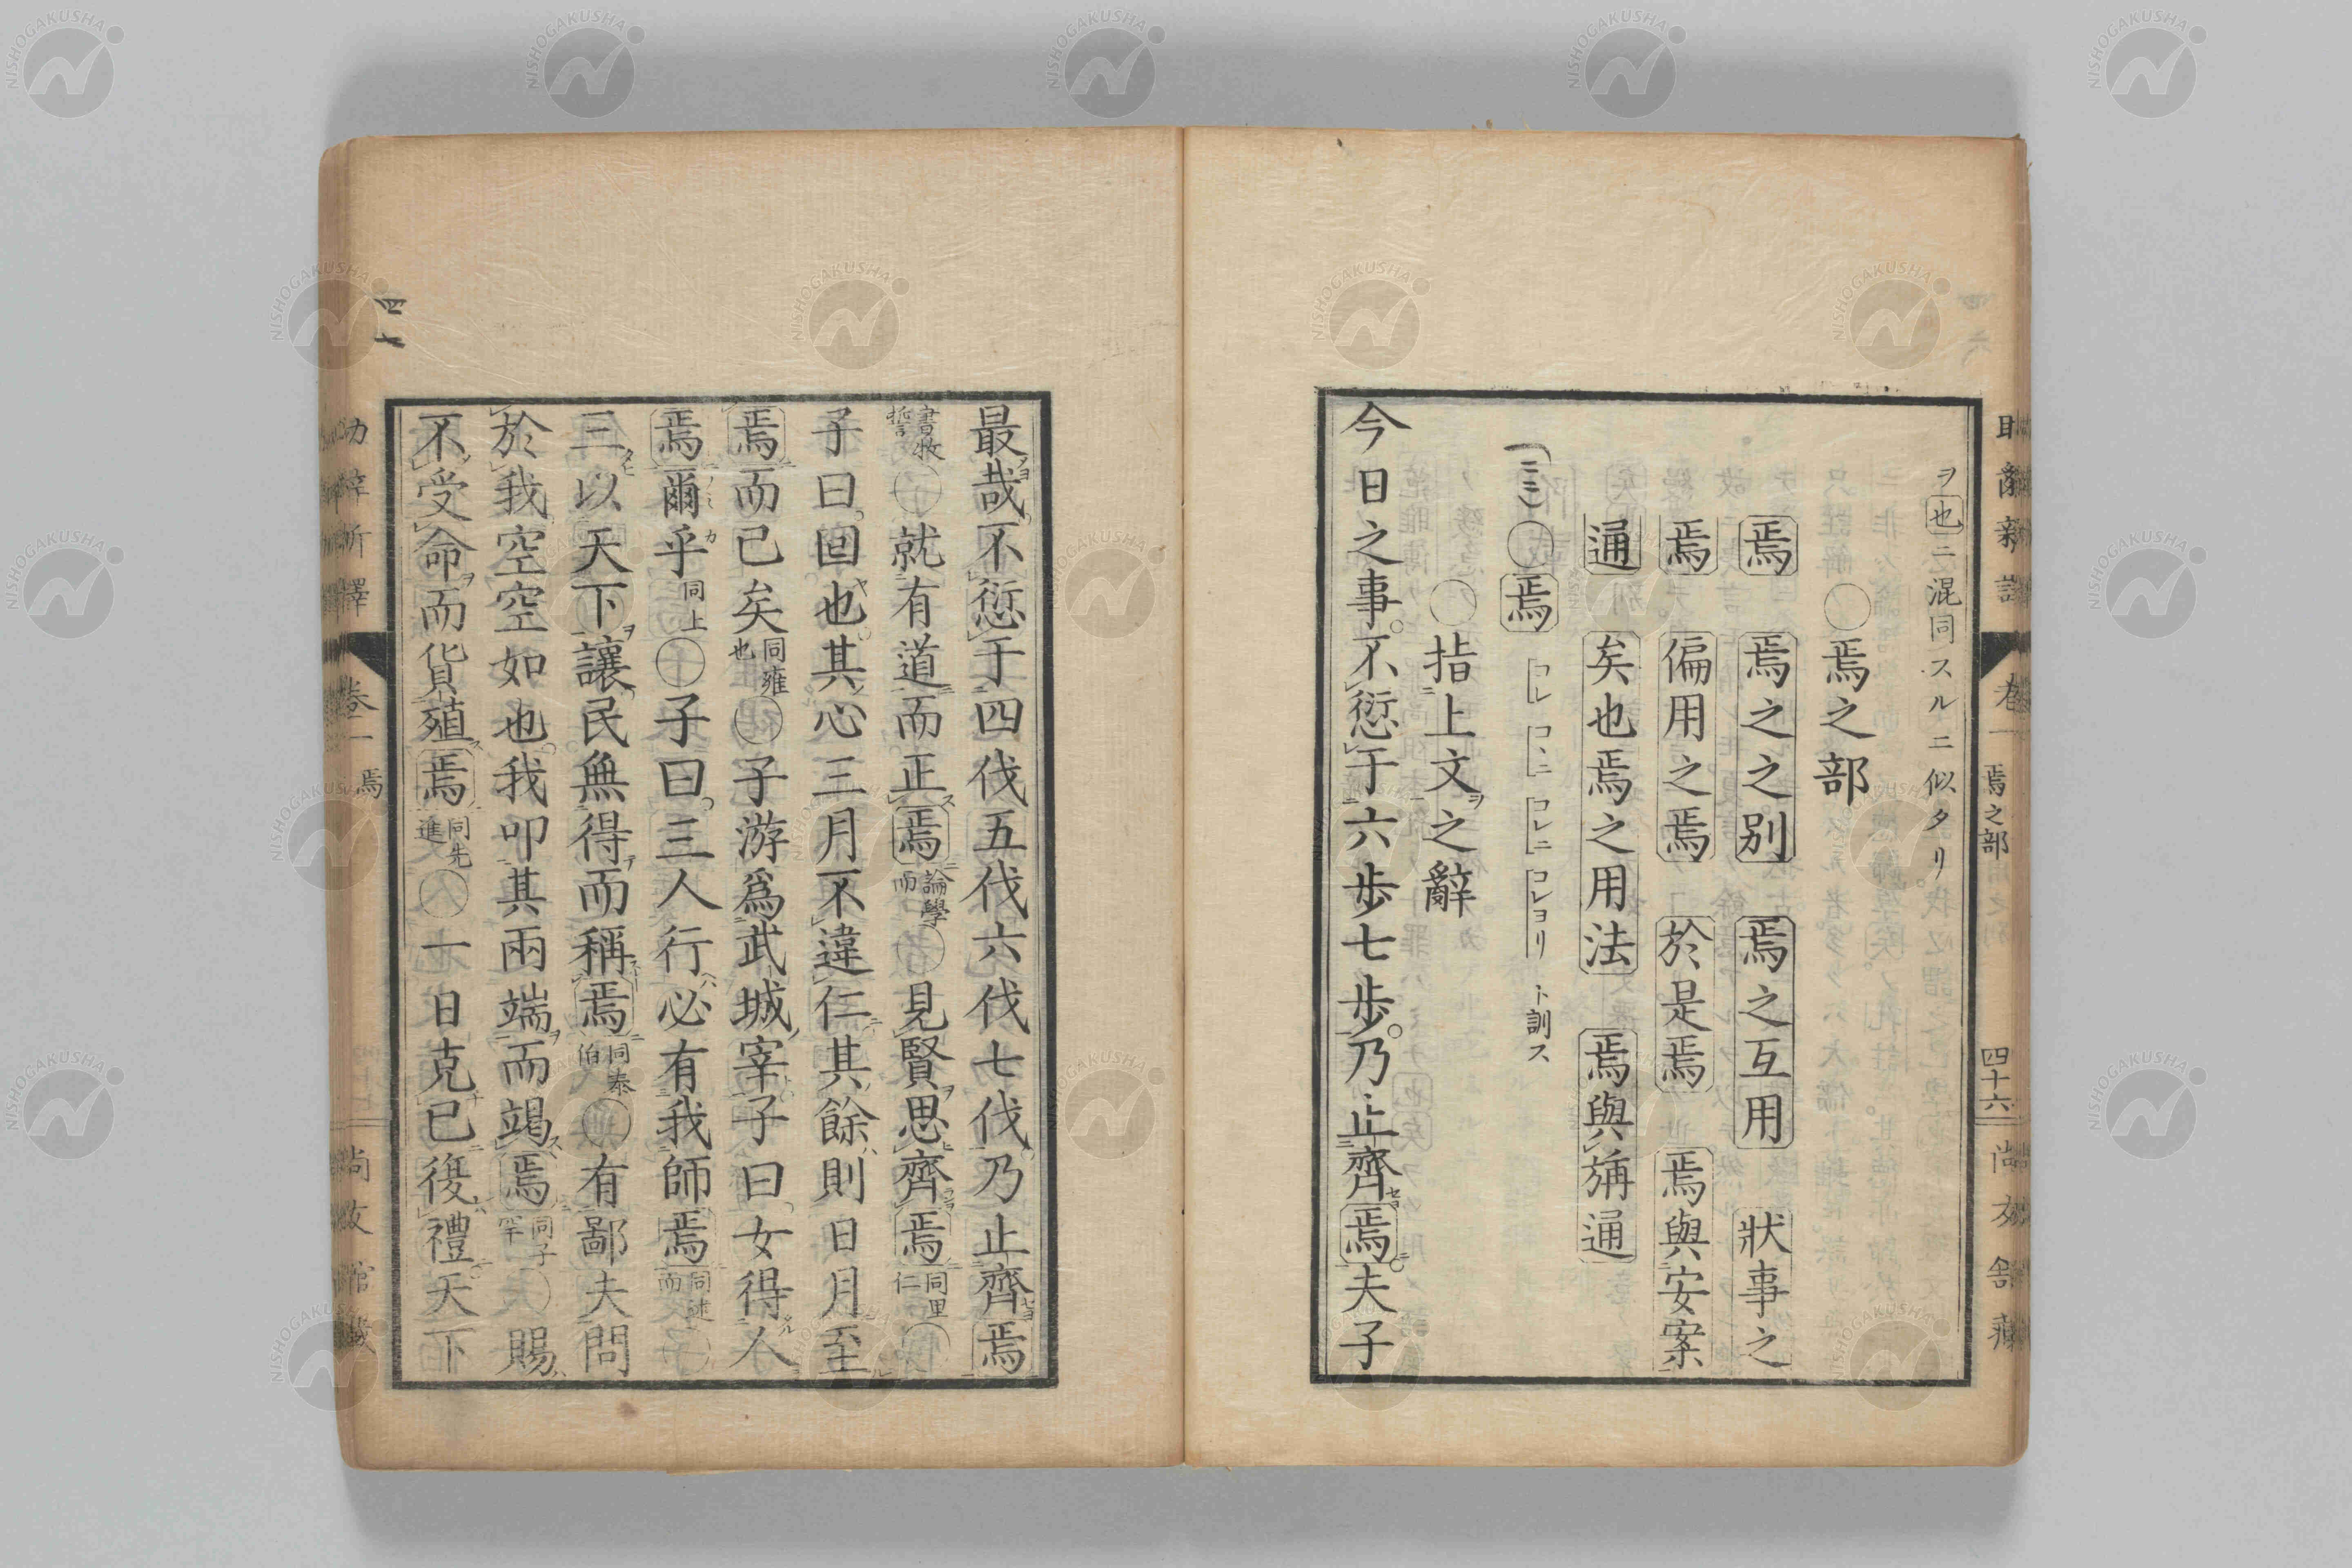 ヲ也ニ混同スルニ似タリ。
○焉之部
焉 焉之之別 焉之互用 狀事之
焉 偏用之焉 於是焉 焉與安案
通 矣也焉之用法 焉與旃通
○焉 コレ コヽニ コレニ コレヨリ ト訓ス
○指上文之辭
今日之事。不愆于六步七步。乃止齊焉。夫子
最哉不愆于四伐五伐六伐七伐乃止齊焉
書牧誓○就有道而正焉論學而○見賢思齊焉同里仁○
子曰回也其心三月不違仁其餘則日月至
焉而已矣同雍也○子游爲武城宰子曰女得人
焉爾乎同上○子曰三人行必有我師焉同述而○
三以天下讓民無得而稱焉同泰伯○有鄙夫問
於我空空如也我叩其兩端而竭焉同子罕○賜
不受命而貨殖焉同先進○一日克己復禮天下
焉之部
四十六
卷一
焉
NISHOGAKUSHA